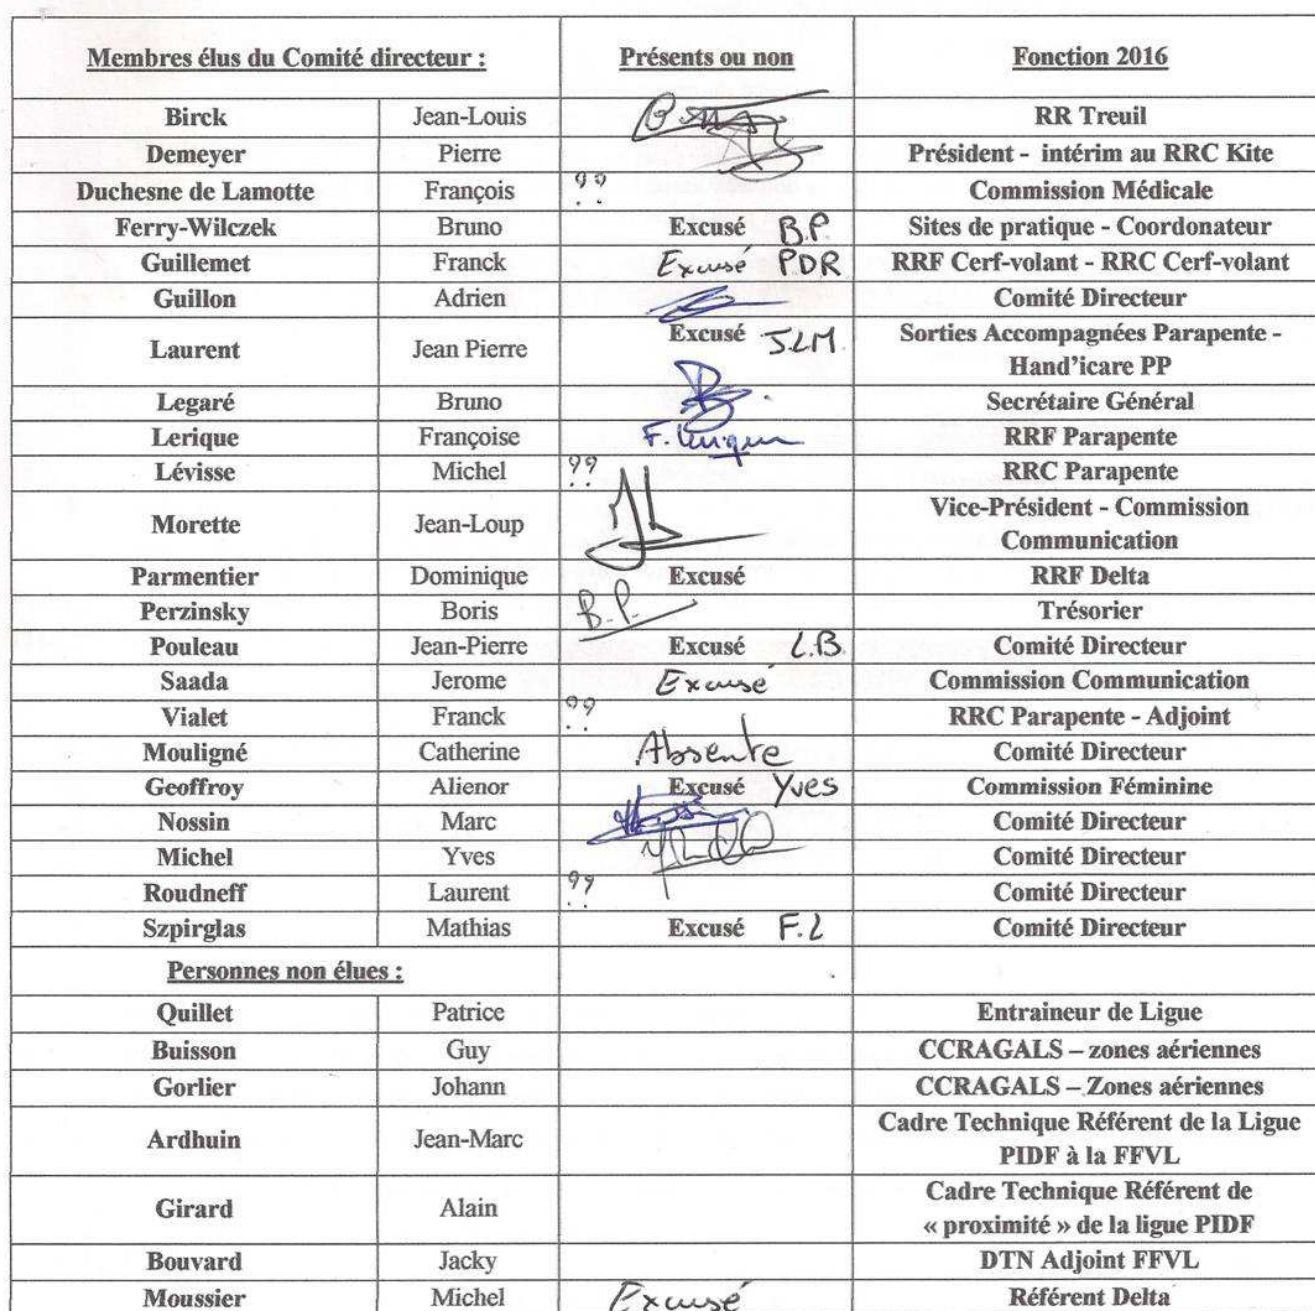 Membres élus du Comité directeur : Présents ou non Fonction 2016
Birck Jean-Louis RR Treuil
Demeyer Pierre Président - intérim au RRC Kite
Duchesne de Lamotte François ?? Commission Médicale
Ferry-Wilczek Bruno Excusé B.P. Sites de pratique - Coordonateur
Guillemet Franck Excusé PDR RRF Cerf-volant - RRC Cerf-volant
Guillon Adrien Comité Directeur
Laurent Jean Pierre Excusé J.L.M. Sorties Accompagnées Parapente -
Hand'icare PP
Legaré Bruno Secrétaire Général
Lerique Françoise F. Lerique RRF Parapente
Lévisse Michel ?? RRC Parapente
Morette Jean-Loup Vice-Président - Commission
Communication
Parmentier Dominique Excusé RRF Delta
Perzinsky Boris B.P. Trésorier
Pouleau Jean-Pierre Excusé L.B Comité Directeur
Saada Jerome Excusé Commission Communication
Vialet Franck ?? RRC Parapente - Adjoint
Mouligné Catherine Absente Comité Directeur
Geoffroy Alienor Excusé Yves Commission Féminine
Nossin Marc Comité Directeur
Michel Yves Comité Directeur
Roudneff Laurent ?? Comité Directeur
Szpirglas Mathias Excusé F.L Comité Directeur
Personnes non élues :
Quillet Patrice Entraineur de Ligue
Buisson Guy CCRAGALS – zones aériennes
Gorlier Johann CCRAGALS – Zones aériennes
Ardhuin Jean-Marc Cadre Technique Référent de la Ligue
PIDF à la FFVL
Girard Alain Cadre Technique Référent de
« proximité » de la ligue PIDF
Bouvard Jacky DTN Adjoint FFVL
Moussier Michel Excusé Référent Delta